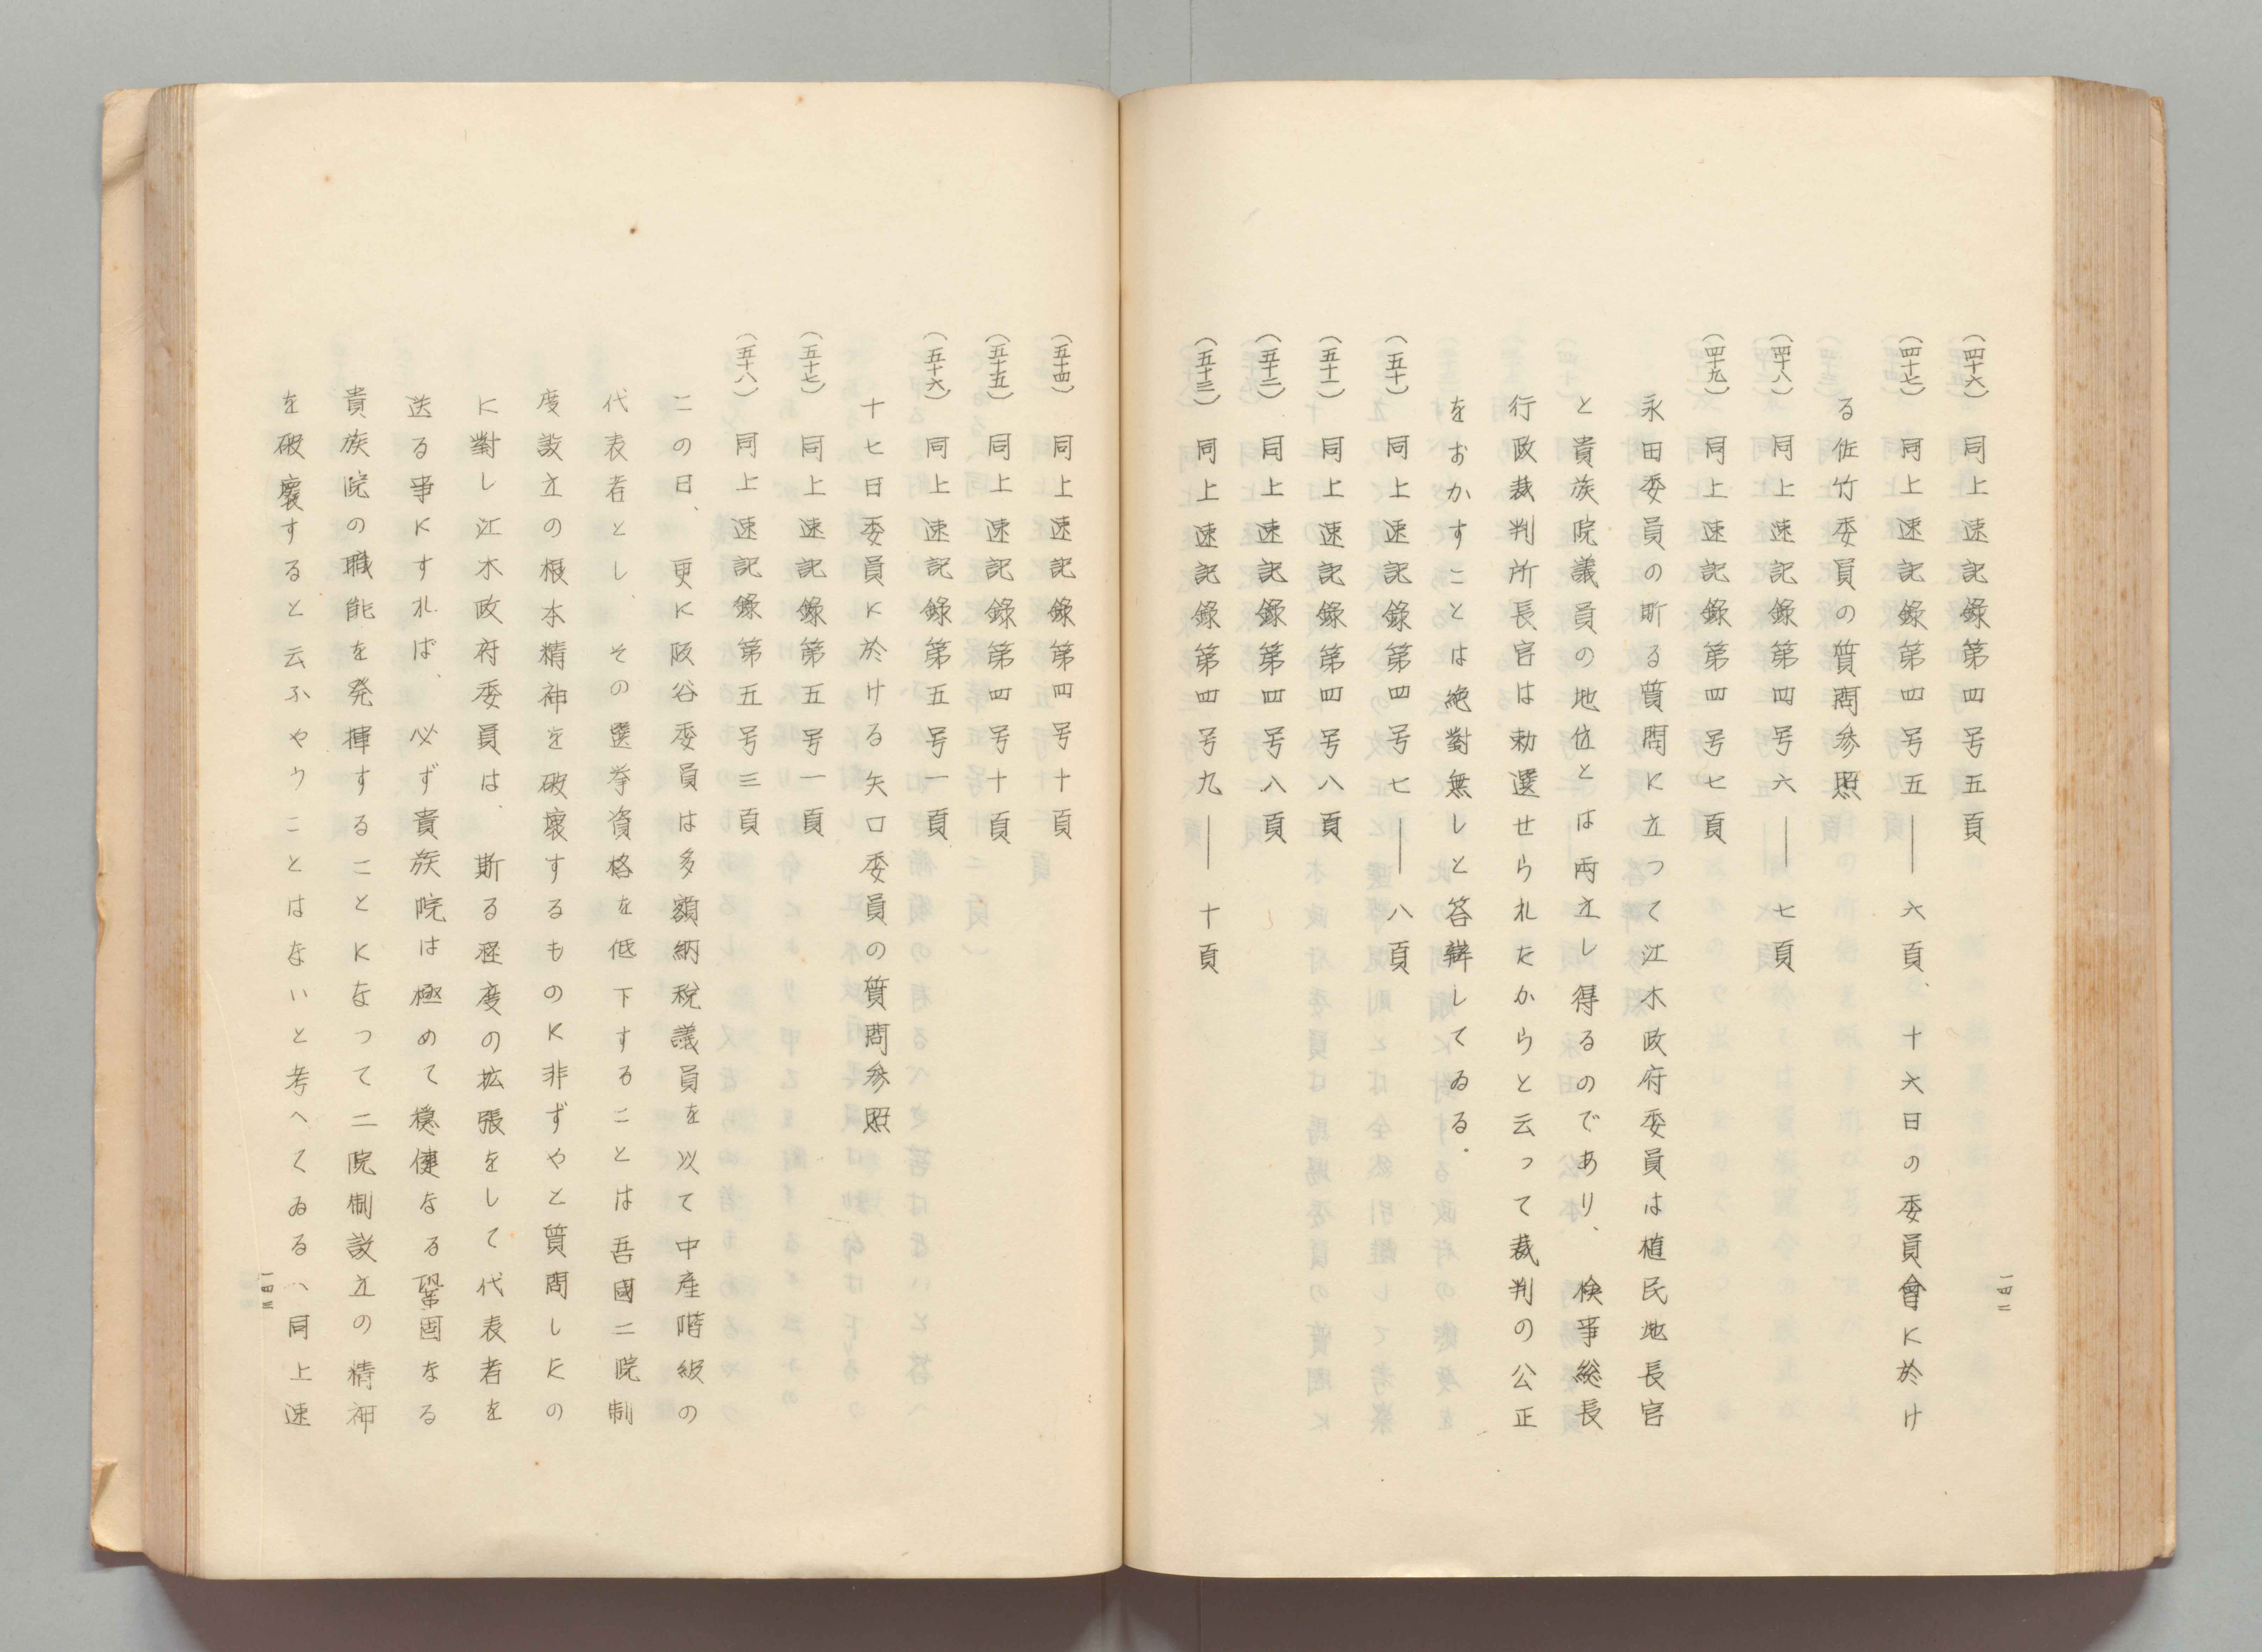 (四十六) 同上速記錄第四号五頁
(四十七) 同上速記錄第四号五――六頁、十六日の委員會に於け
る佐竹委員の質問参照
(四十八) 同上速記錄第四号六――七頁
(四十九) 同上速記錄第四号七頁
永田委員の斯る質問に立って江木政府委員は植民地長官
と貴族院議員の地位とは両立し得るのであり、検事総長
行政裁判所長官は勅選せられたからと云って裁判の公正
をおかすことは絶對無しと答辯してゐる.
(五十) 同上速記錄第四号七――八頁
(五十一) 同上速記錄第四号八頁
(五十二) 同上速記錄第四号八頁
(五十三) 同上速記錄第四号九――十頁
一四二
(五十四) 同上速記錄第四号十頁
(五十五) 同上速記錄第四号十頁
(五十六) 同上速記錄第五号一頁
十七日委員に於ける矢口委員の質問参照
(五十七) 同上速記錄第五号一頁
(五十八) 同上速記錄第五号三頁
この日、更に阪谷委員は多額納税議員を以て中産階級の
代表者とし、その選挙資格を低下することは吾國二院制
度設立の根本精神を破壞するものに非ずやと質問したの
に對し江木政府委員は、斯る程度の拡張をして代表者を
送る事にすれば、必ず貴族院は極めて穏健なる鞏固なる
貴族院の職能を発揮することになって二院制設立の精神
を破壞すると云ふやうことはないと考へてゐる(同上速
一四三